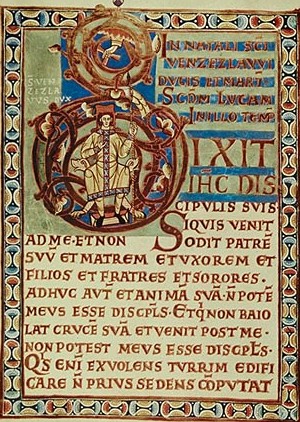 IN NATALI SCI
VENZEZLAVI
DVCIS ET MART
SCDM LVCAM
IN ILLO TEMP
S VEN
ZIZLA
VVS DVX
DIXIT
IHC DIS
CIPVLIS SVIS
SIQVIS VENIT
AD ME ET NON ODIT PATRĒ
SVV̄ ET MATREM ET VXOREM ET
FILIOS ET FRATRES ET SORORES.
ADHVC AVT̄ ET ANIMĀ SVĀ. N̄ POTĒ
MEVS ESSE DISCPLS. ET Q̄ N̄ BAIO
LAT CRVCĒ SVĀ ET VENIT POST ME.
NON POTEST MEVS ESSE DISCPLS.
QS ENI EX VOLENS TVRRIM EDIFI
CARE N̄ PRIVS SEDENS CŌPVTAT